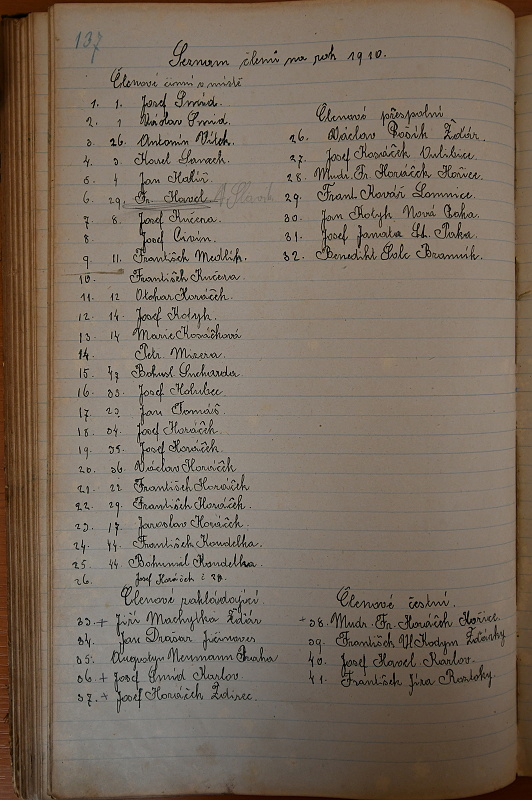 137
Seznam členů na rok 1910.
Členové činní v místě
1. 1. Josef Šmíd.
2. 1 Václav Šmíd.
3. 26. Antonín Vlček.
4. 3. Karel
5. 4 Jan
6. 29, Fr. Havel
7 8. Josef Kučera.
8. Josef
9 11. František Medlík.
10. František Kučera.
11. 12 Otokar Horáček.
12. 14. Josef Kotyk.
13. 14 Marie Kosáčková
14. Petr. Mizera.
15. 47 Bohusl. Sucharda.
16. 33. Josef Holubec.
17. 23. Jan Tomáš.
18. 34. Josef Horáček.
19. 35. Josef Horáček.
20. 36. Václav Horáček
21. 22 František Horáček
22. 29. František Horáček.
23. 17. Jaroslav Horáček.
24. 44. František Koudelka.
25. 44. Bohumil Koudelka.
26. Josef Horáček č 28.
Členové přespolní
26. Václav Pošík Žďár.
27. Josef Kosáček
28. Mudr. Fr. Horáček Hořice.
29. Frant. Kovář Lomnice.
30. Jan Kotyk Nová Paka.
31. Josef Janata St. Paka.
32. Benedikt Šolc Brannik.
Členové zakládající
33. + Jiří Machytka Žďár
34. Jan Drašar Jičinoves
35. Neumann Praha
36. + Josef Šmíd Karlov
37. + Josef Horáček Ždírec.
Členové čestní.
+ 38. Mudr. Fr. Horáček Hořice.
39. František Vl Kodym
40. Josef Havel Karlov.
41. František Jíra Roztoky.